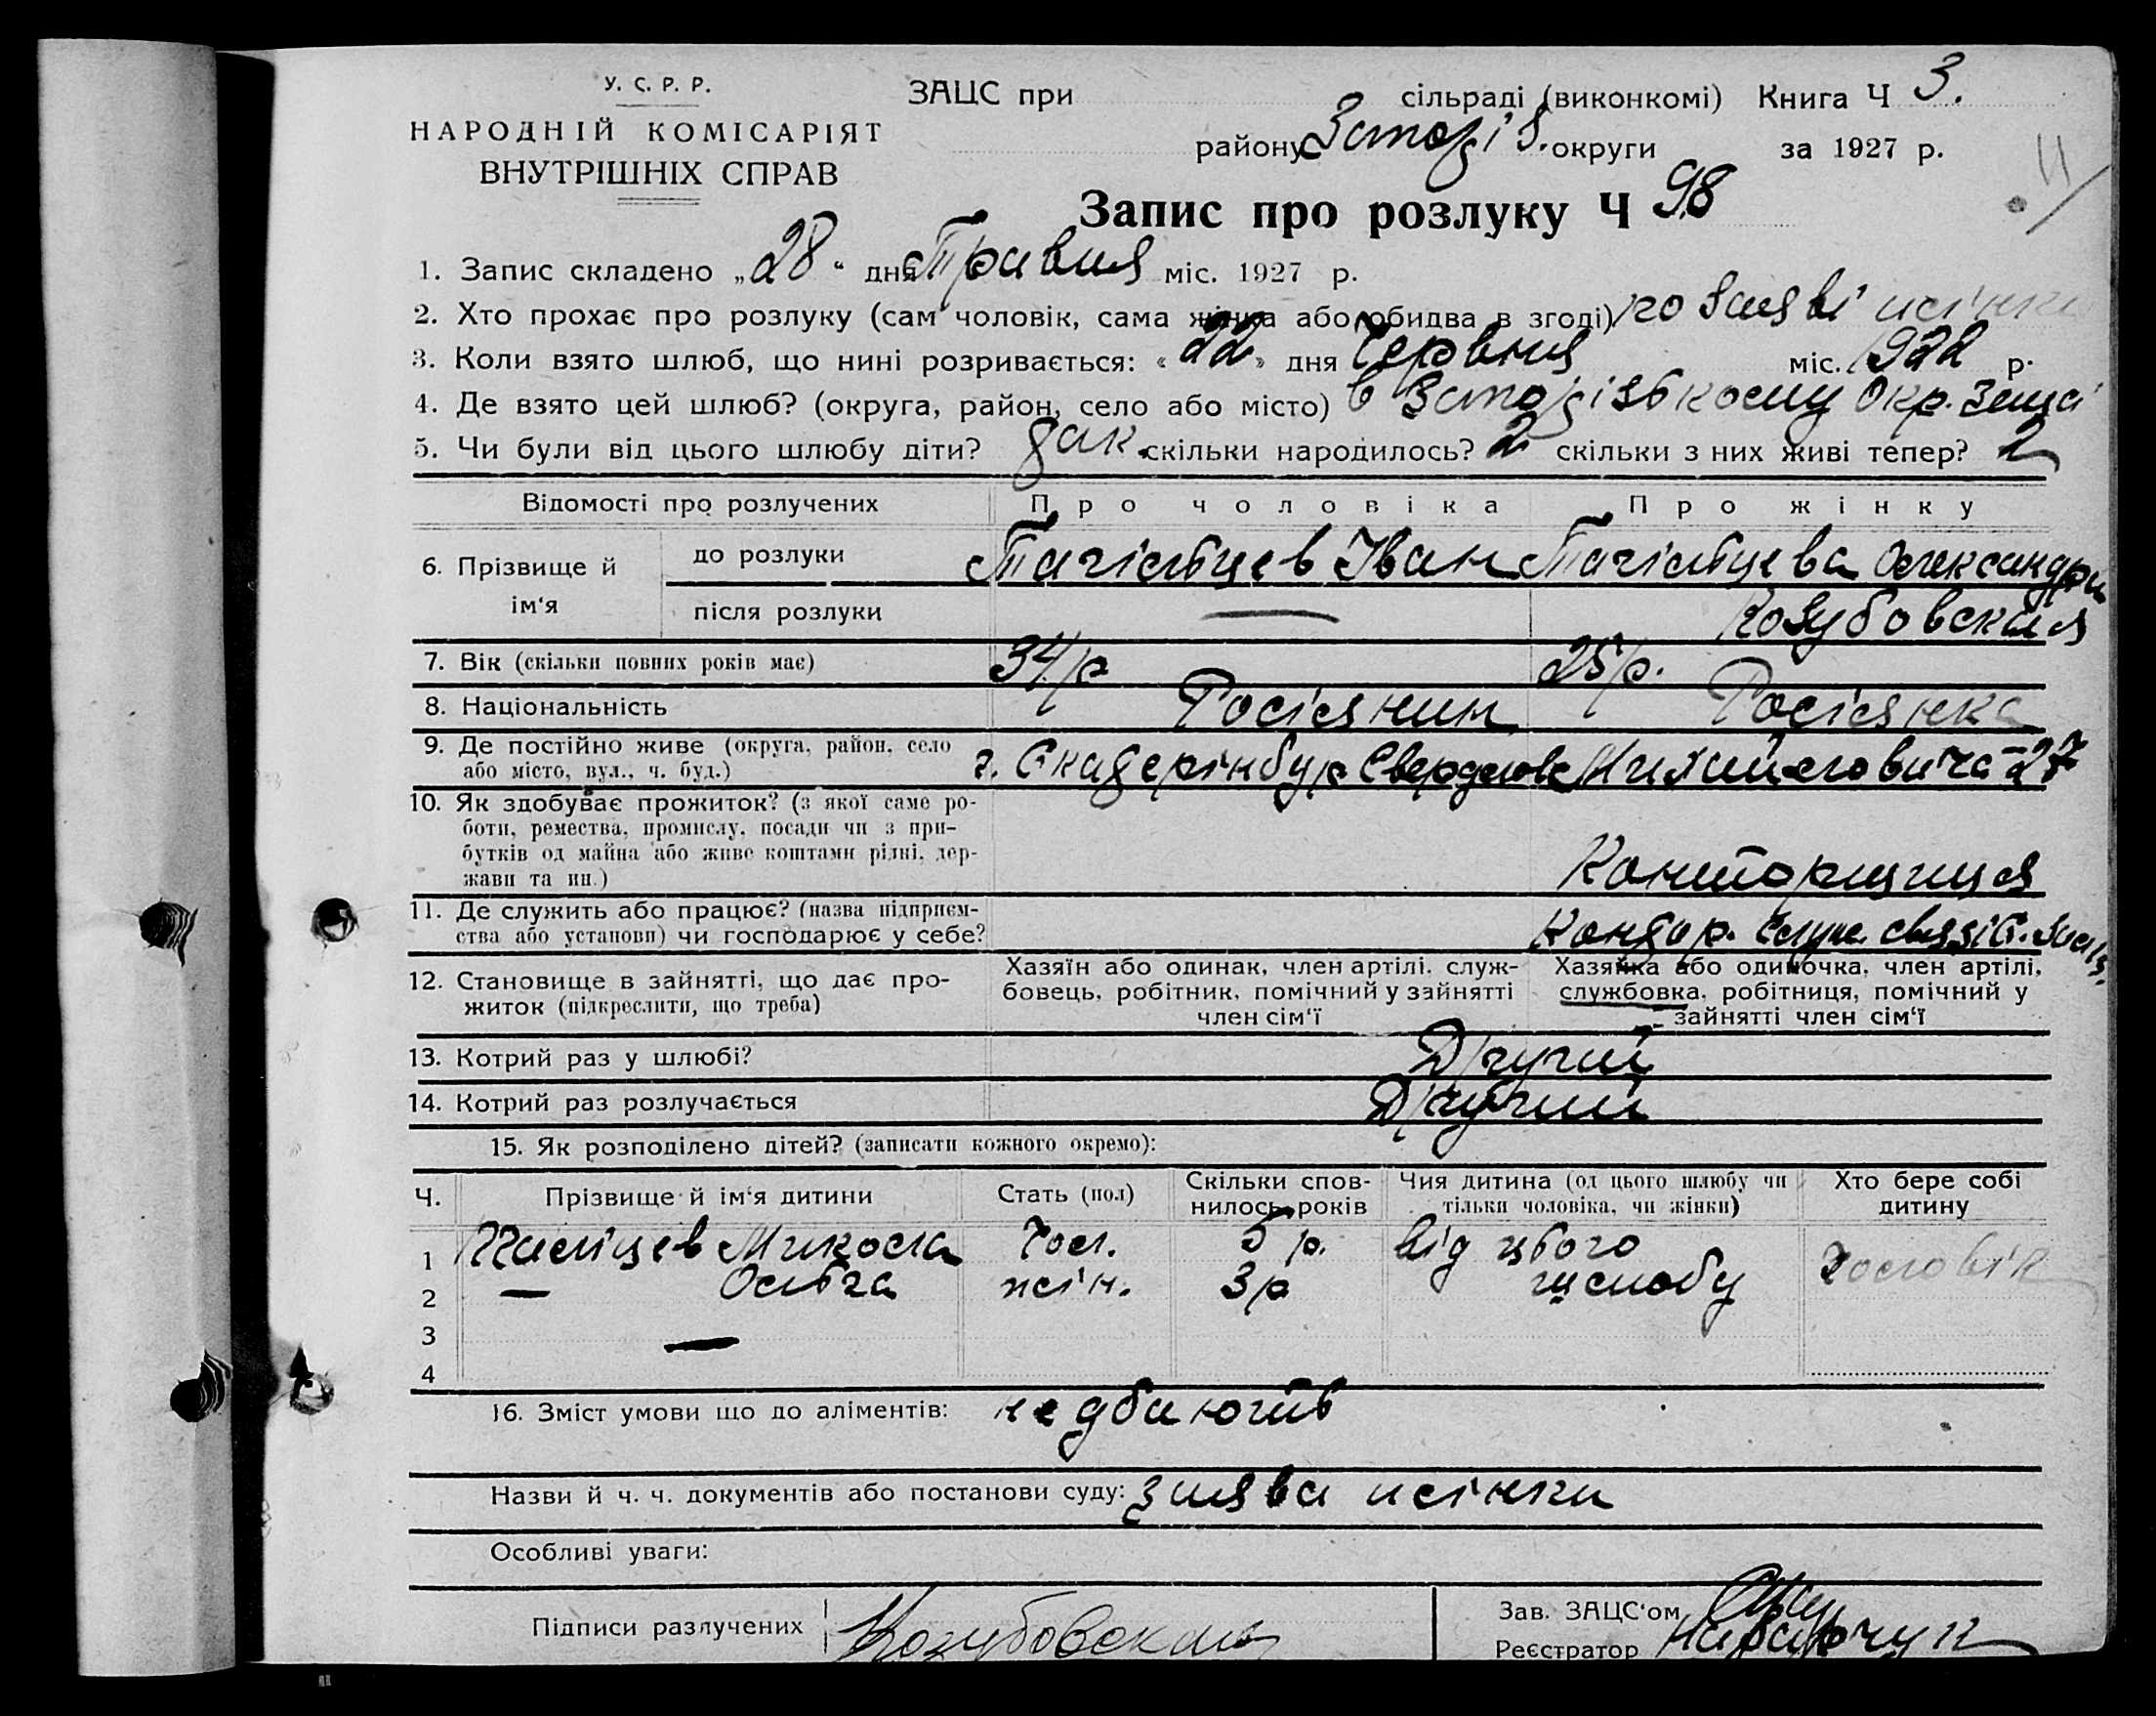 У. С. Р. Р.
НАРОДНІЙ КОМІСАРІЯТ
ВНУТРІШНІХ СПРАВ
ЗАЦС при сільраді (виконкомі) Книга Ч 3.
району округи за 1927 р.
Запис про розлуку Ч 98
1. Запис складено „28“ дня Травня міс. 1927 р.
2. Хто прохає про розлуку (сам чоловік, сама жінка або обидва в згоді) по заяві жінки
3. Коли взято шлюб, що нині розривається: «22» дня Червня міс. 1922 р.
4. Де взято цей шлюб? (округа, район, село або місто) в Окр. Загсі
5. Чи були від цього шлюбу діти? так скільки народилось? 2 скільки з них живі тепер? 2
Відомості про розлучених Про чоловіка Про жінку
6. Прізвище й ім‘я
до розлуки Іван Олександра
після розлуки — Козубовская
7. Вік (скільки повних років має) 34 р 25 р.
8. Національність Росіянин Росіянка
9. Де постійно живе (округа, район, село
або місто, вул., ч. буд.) г. Екатерінбур Свердловс 27
10. Як здобуває прожиток? (з якої саме ро-
боти, ремества, промислу, посади чи з при-
бутків од майна або живе коштами рідні, дер-
жави та ин.) Конторщиця
11. Де служить або працює? (назва підприєм-
ства або установи) чи господарює у себе? Контор.
12. Становище в зайнятті, що дає про-
житок (підкреслити, що треба)
Хазяїн або одинак, член артілі, служ-
бовець, робітник, помічний у зайнятті
член сім‘ї
Хазяйка або одиночка, член артілі,
службовка, робітниця, помічний у
зайнятті член сім‘ї
13. Котрий раз у шлюбі? Другий
14. Котрий раз розлучається Другий
15. Як розподілено дітей? (записати кожного окремо):
Ч. Прізвище й ім‘я дитини Стать (пол) Скільки спов-
нилось років Чия дитина (од цього шлюбу чи
тільки чоловіка, чи жінки) Хто бере собі
дитину
1 Микола Чол. 5 р. від цього
2 — Ольга жін. 3 р шлюбу Чоловік
3 —
4
16. Зміст умови що до аліментів: не дбають
Назви й ч. ч. документів або постанови суду: заява жінки
Особливі уваги:
Підписи разлучених Козубовская
Зав. ЗАЦС‘ом
Реєстратор